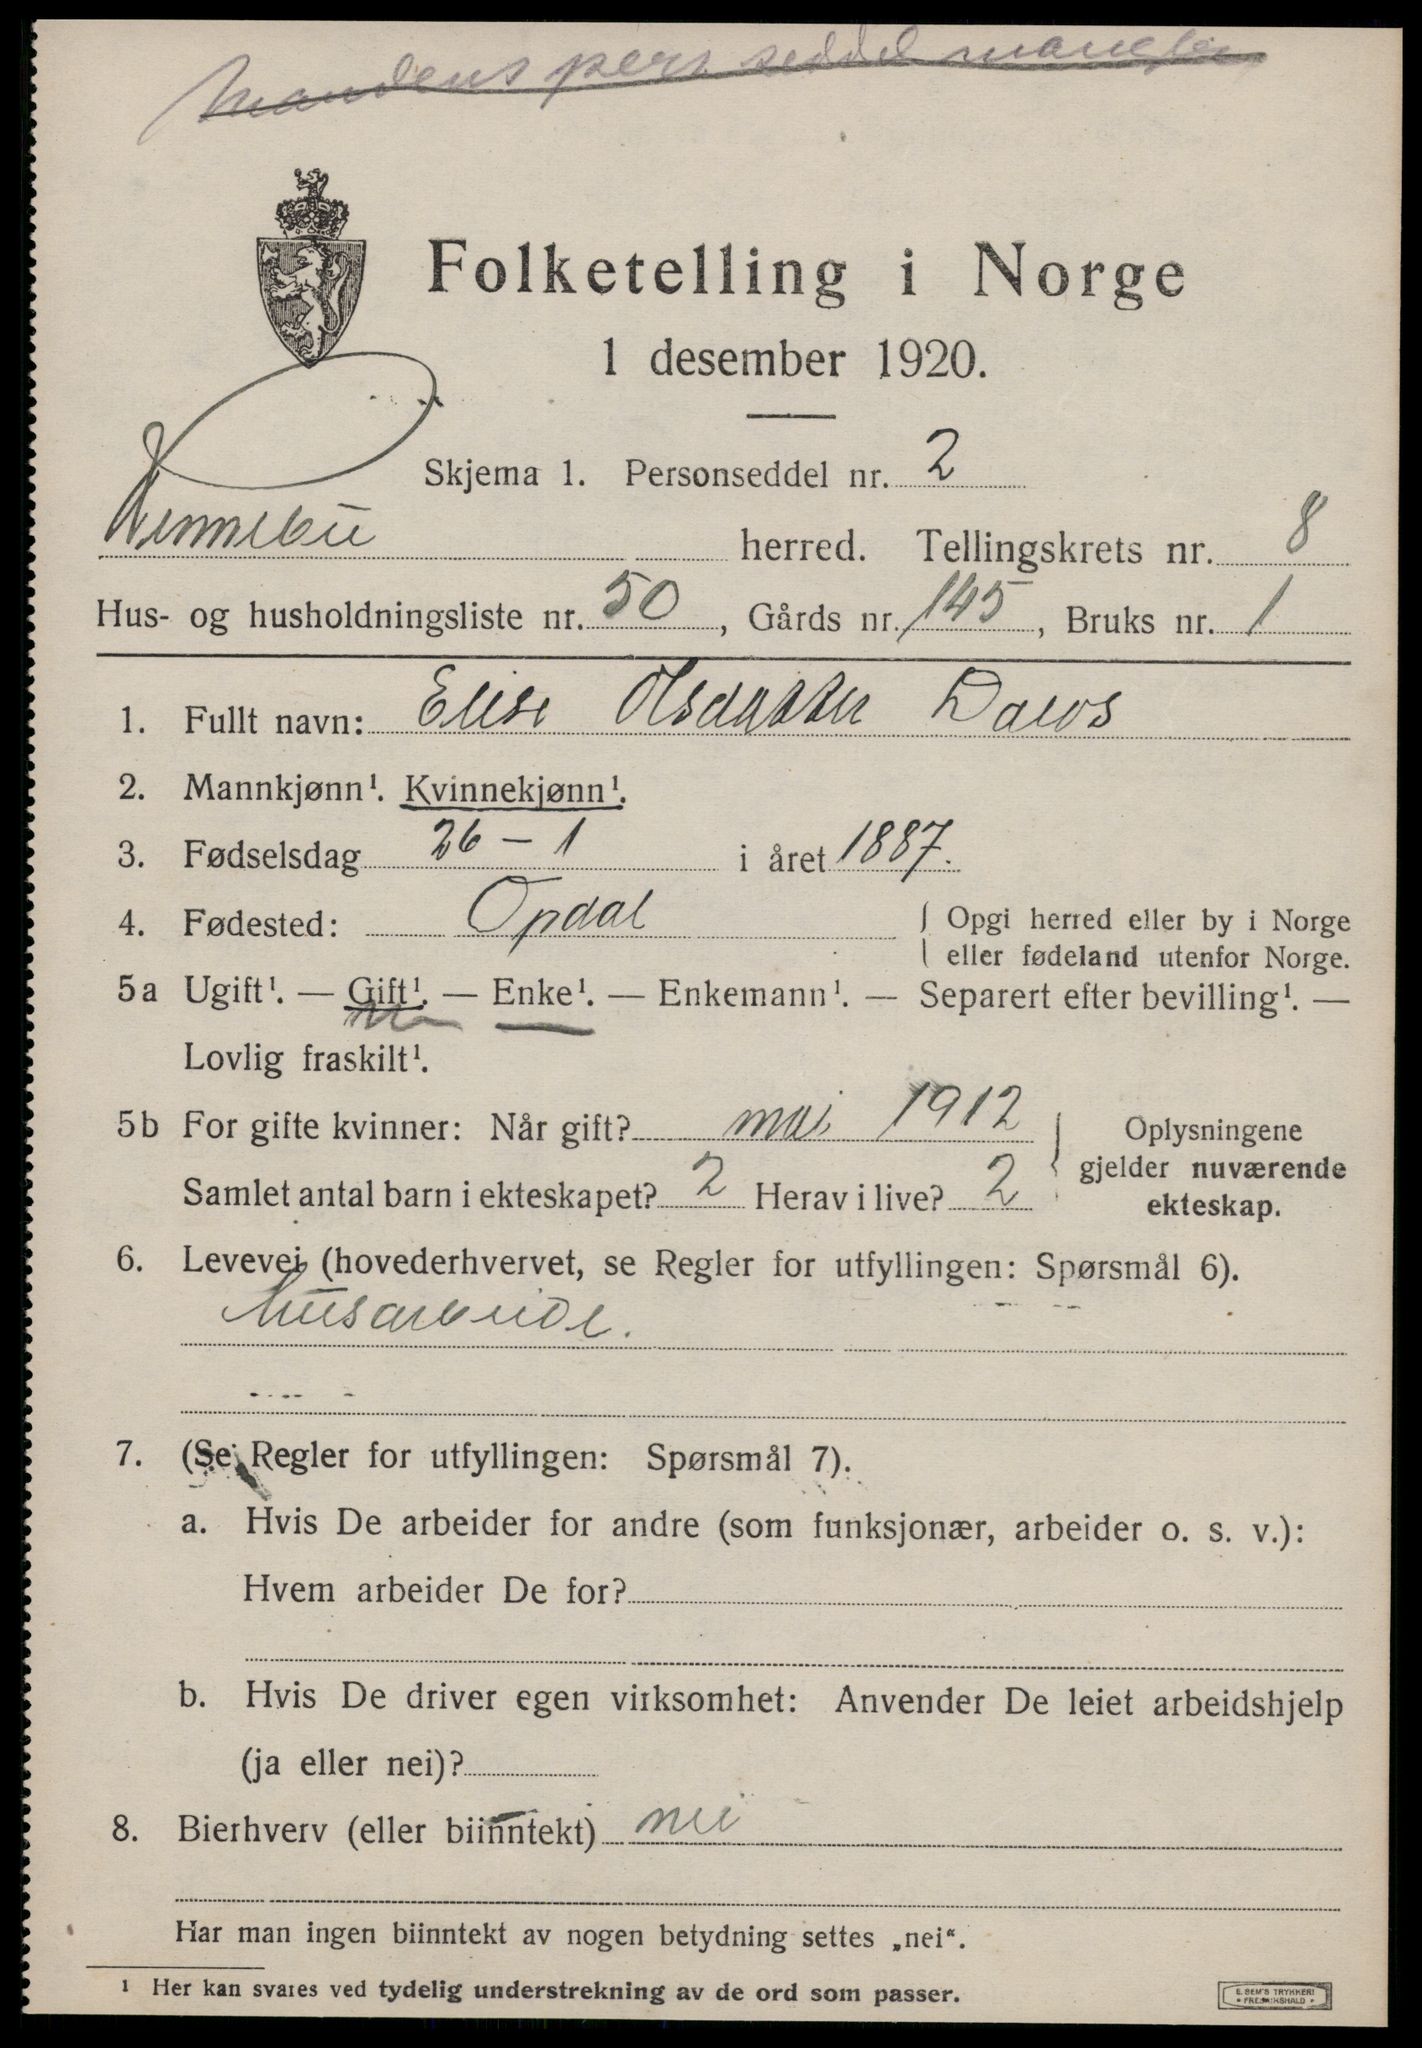 Mandens pers. seddel mangler
Folketelling i Norge
1 desember 1920.
Skjema 1. Personseddel nr. 2
Rennebu herred. Tellingskrets nr. 8
Hus- og husholdningsliste nr. 50, Gårds nr. 145, Bruks nr. 1
1. Fullt navn: Elise Olsdatter
2. Mannkjønn¹. Kvinnekjønn¹.
3. Fødselsdag 26 – 1 i året 1887.
4. Fødested: Opdal { Opgi herred eller by i Norge
eller fødeland utenfor Norge.
5a Ugift¹. — Gift¹. — Enke¹. — Enkemann¹. — Separert efter bevilling¹. —
Lovlig fraskilt¹.
5b For gifte kvinner: Når gift? mai 1912
Samlet antal barn i ekteskapet? 2 Herav i live? 2
Oplysningene
gjelder nuværende
ekteskap.
6. Levevei (hovederhvervet, se Regler for utfyllingen: Spørsmål 6).
Husarbeide.
7. (Se Regler for utfyllingen: Spørsmål 7).
a. Hvis De arbeider for andre (som funksjonær, arbeider o. s. v.):
Hvem arbeider De for?
b. Hvis De driver egen virksomhet: Anvender De leiet arbeidshjelp
(ja eller nei)?
8. Bierhverv (eller biinntekt) nei
Har man ingen biinntekt av nogen betydning settes „nei“.
¹ Her kan svares ved tydelig understrekning av de ord som passer.
E. SEM'S TRYKKERI
• FREDRIKSHALD •